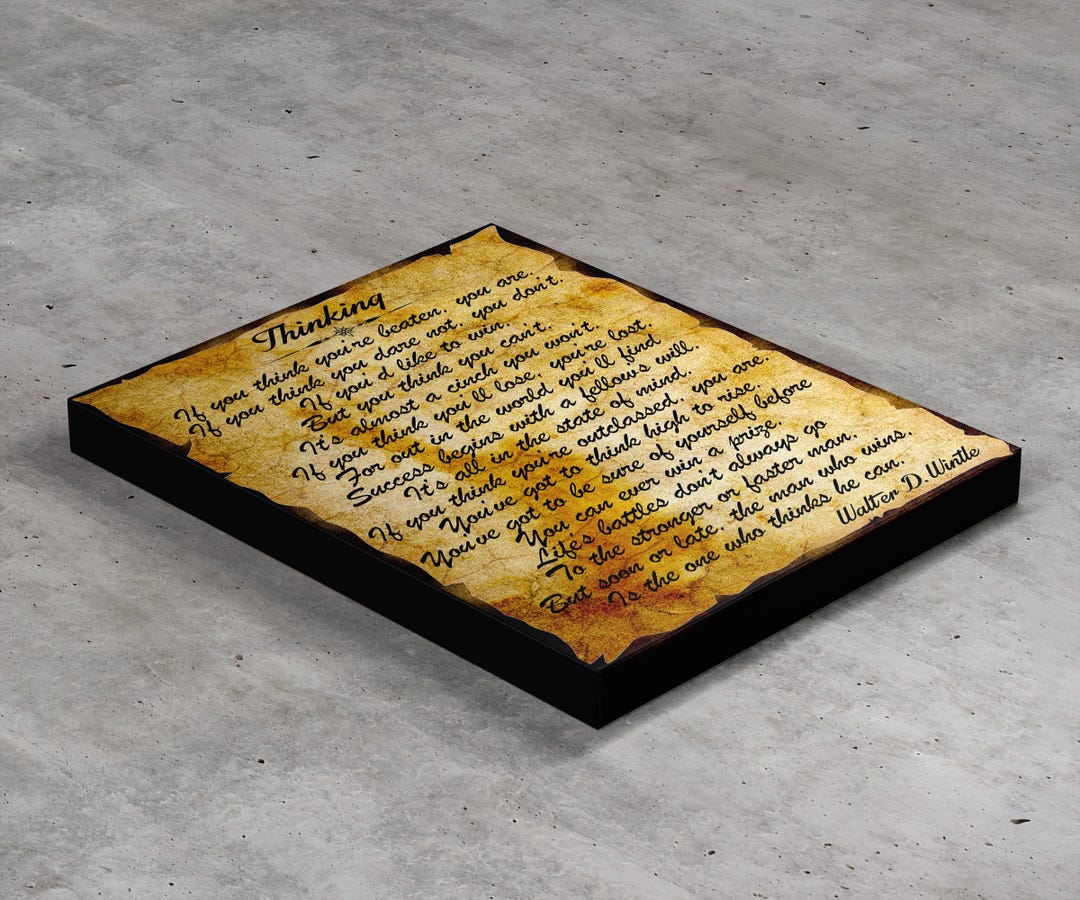 Thinking
If you think you're beaten, you are.
If you think you dare not, you don't.
If you'd like to win,
But you think you can't,
It's almost a cinch you won't.
If you think you'll lose, you're lost.
For out in the world you'll find
Success begins with a fellows will.
It's all in the state of mind.
If you think you're outclassed, you are.
You've got to think high to rise.
You've got to be sure of yourself before
You can ever win a prize.
Life's battles don't always go
To the stronger or faster man,
But soon or late, the man who wins,
Is the one who thinks he can.
Walter D. Wintle